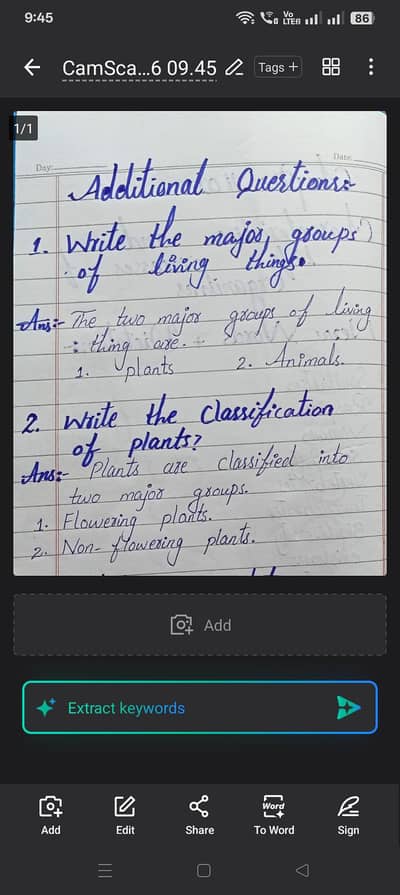 9:45
Vo LTE 86
CamSca...6 09.45
Tags +
1/1
Day:
Date:
Additional Questions:-
1. Write the major groups
of living things.
Ans:- The two major groups of living
thing are.
1. plants 2. Animals.
2. Write the Classification
of plants?
Ans:- Plants are classified into
two major groups.
1. Flowering plants.
2. Non-flowering plants.
Add
Extract keywords
Add
Edit
Share
Word
To Word
Sign